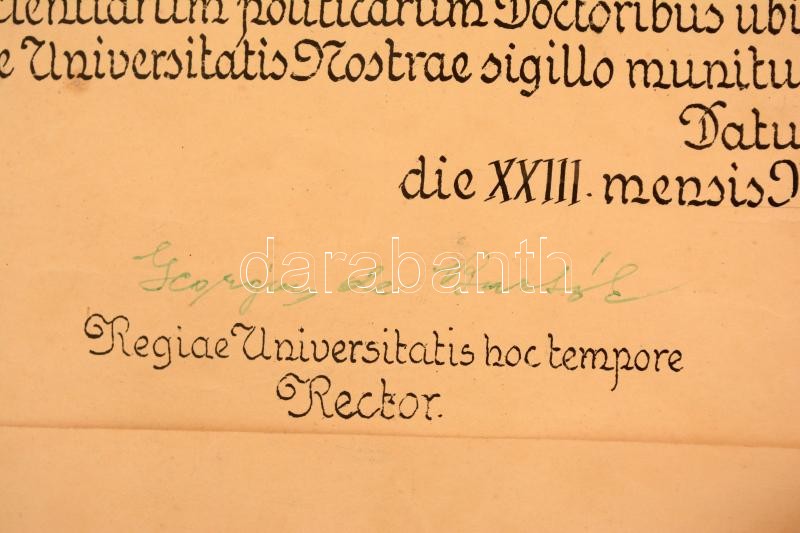 scientiarum politicarum Doctoribus ubi
e Universitatis Nostrae sigillo munitu
Datu
die XXIII. mensis
Georgius de Bartók
darabanth
Regiae Universitatis hoc tempore
Rector.